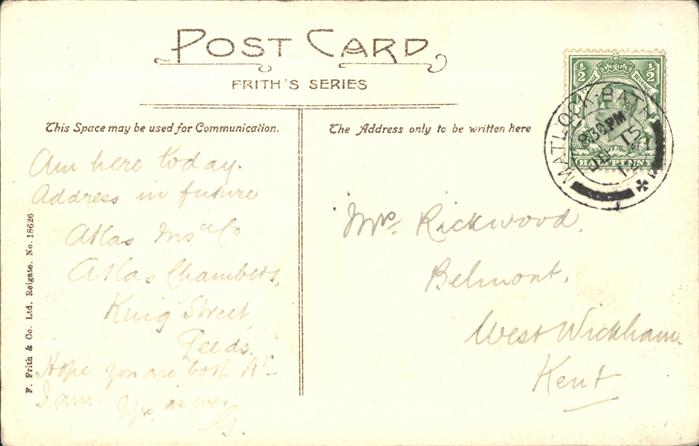 POST CARD
FRITH'S SERIES
This Space may be used for Communication.
The Address only to be written here
Am here today.
Address in future
Atlas Insce Co
Atlas Chambers,
King Street,
Leeds.
Hope you are both A1-
I am. Yrs as ever
G.
Mrs. Rickwood,
Belmont,
West Wickham
Kent
F. Frith & Co. Ltd. Reigate. No. 18626
½ ½
MATLOCK-BATH
8.30 PM
12